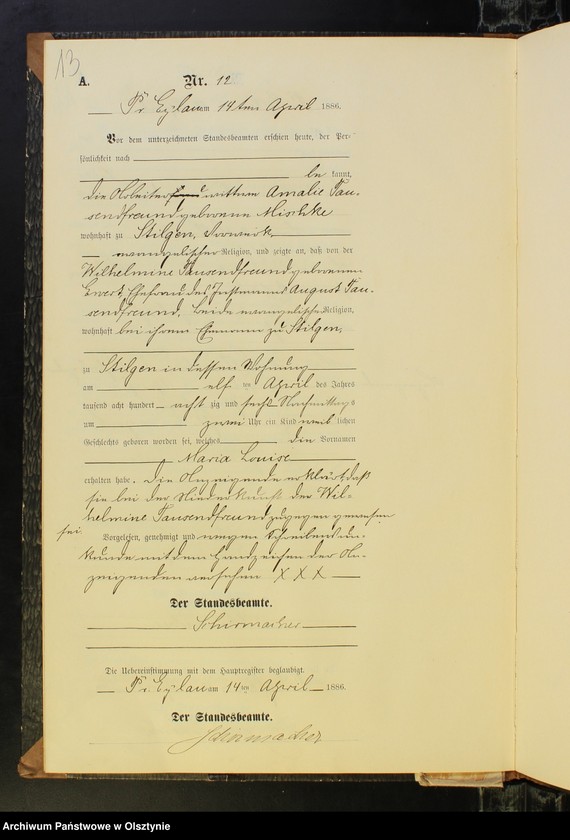 13
A. Nr. 12
Pr. Eylau am 14ten April 1886.
Vor dem unterzeichneten Standesbeamten erschien heute, der Per-
sönlichkeit nach
be kannt,
die Arbeiter wittwe Amalie Tau-
sendfreund geborene Mischke
wohnhaft zu Stilgen, Vorwerk
evangelischer Religion, und zeigte an, daß von der
Wilhelmine Tausendfreund geborenen
Ewert, Ehefrau des Instmanns August Tau-
sendfreund, beide evangelischer Religion,
wohnhaft bei ihrem Ehemann zu Stilgen,
zu Stilgen in dessen Wohnung
am elf ten April des Jahres
tausend acht hundert acht zig und sechs Nachmittags
um zwei Uhr ein Kind weib lichen
Geschlechts geboren worden sei, welches die Vornamen
Maria Louise
erhalten habe. Die Anzeigende erklärt, daß
sie bei der Niederkunft der Wil-
helmine Tausendfreund zugegen gewesen
sei.
Vorgelesen, genehmigt und wegen Schreibensun-
kunde mit dem Handzeichen der An-
zeigenden versehen X X X
Der Standesbeamte.
Schirmacher
Die Uebereinstimmung mit dem Hauptregister beglaubigt.
Pr. Eylau am 14ten April 1886.
Der Standesbeamte.
Schirmacher
Archiwum Państwowe w Olsztynie